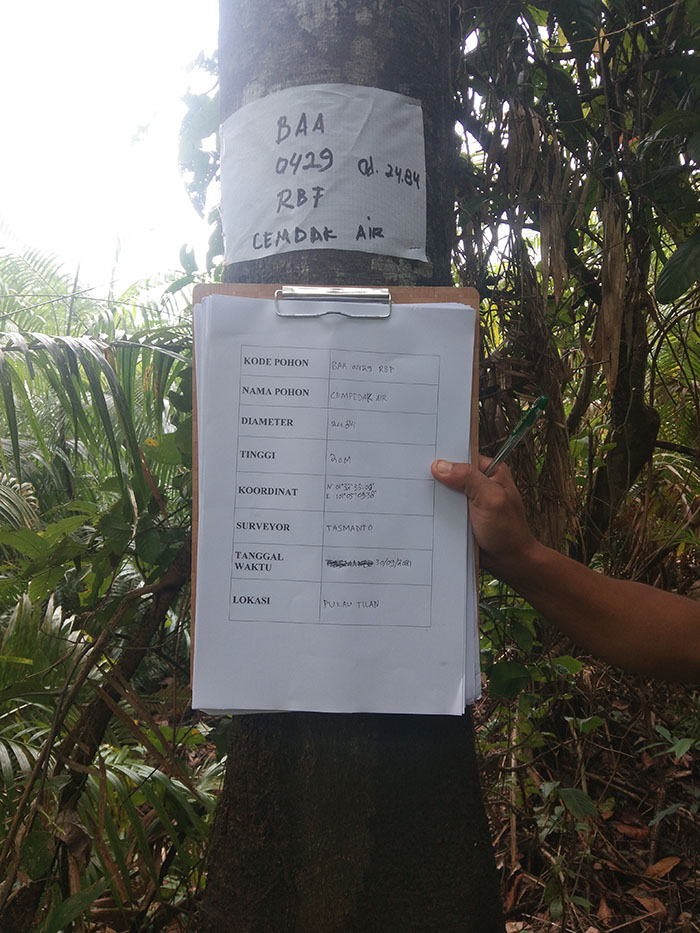 BAA
0429 Cd. 24.84
RBF
CEMDAK AIR
KODE POHON BAA 0429 RBF
NAMA POHON CEMPEDAK AIR
DIAMETER
TINGGI 20M
KOORDINAT N 01°32'33.08"
E 101°05'09.38"
SURVEYOR TASMANTO
TANGGAL 30/09/2021
WAKTU
LOKASI PULAU TILAN